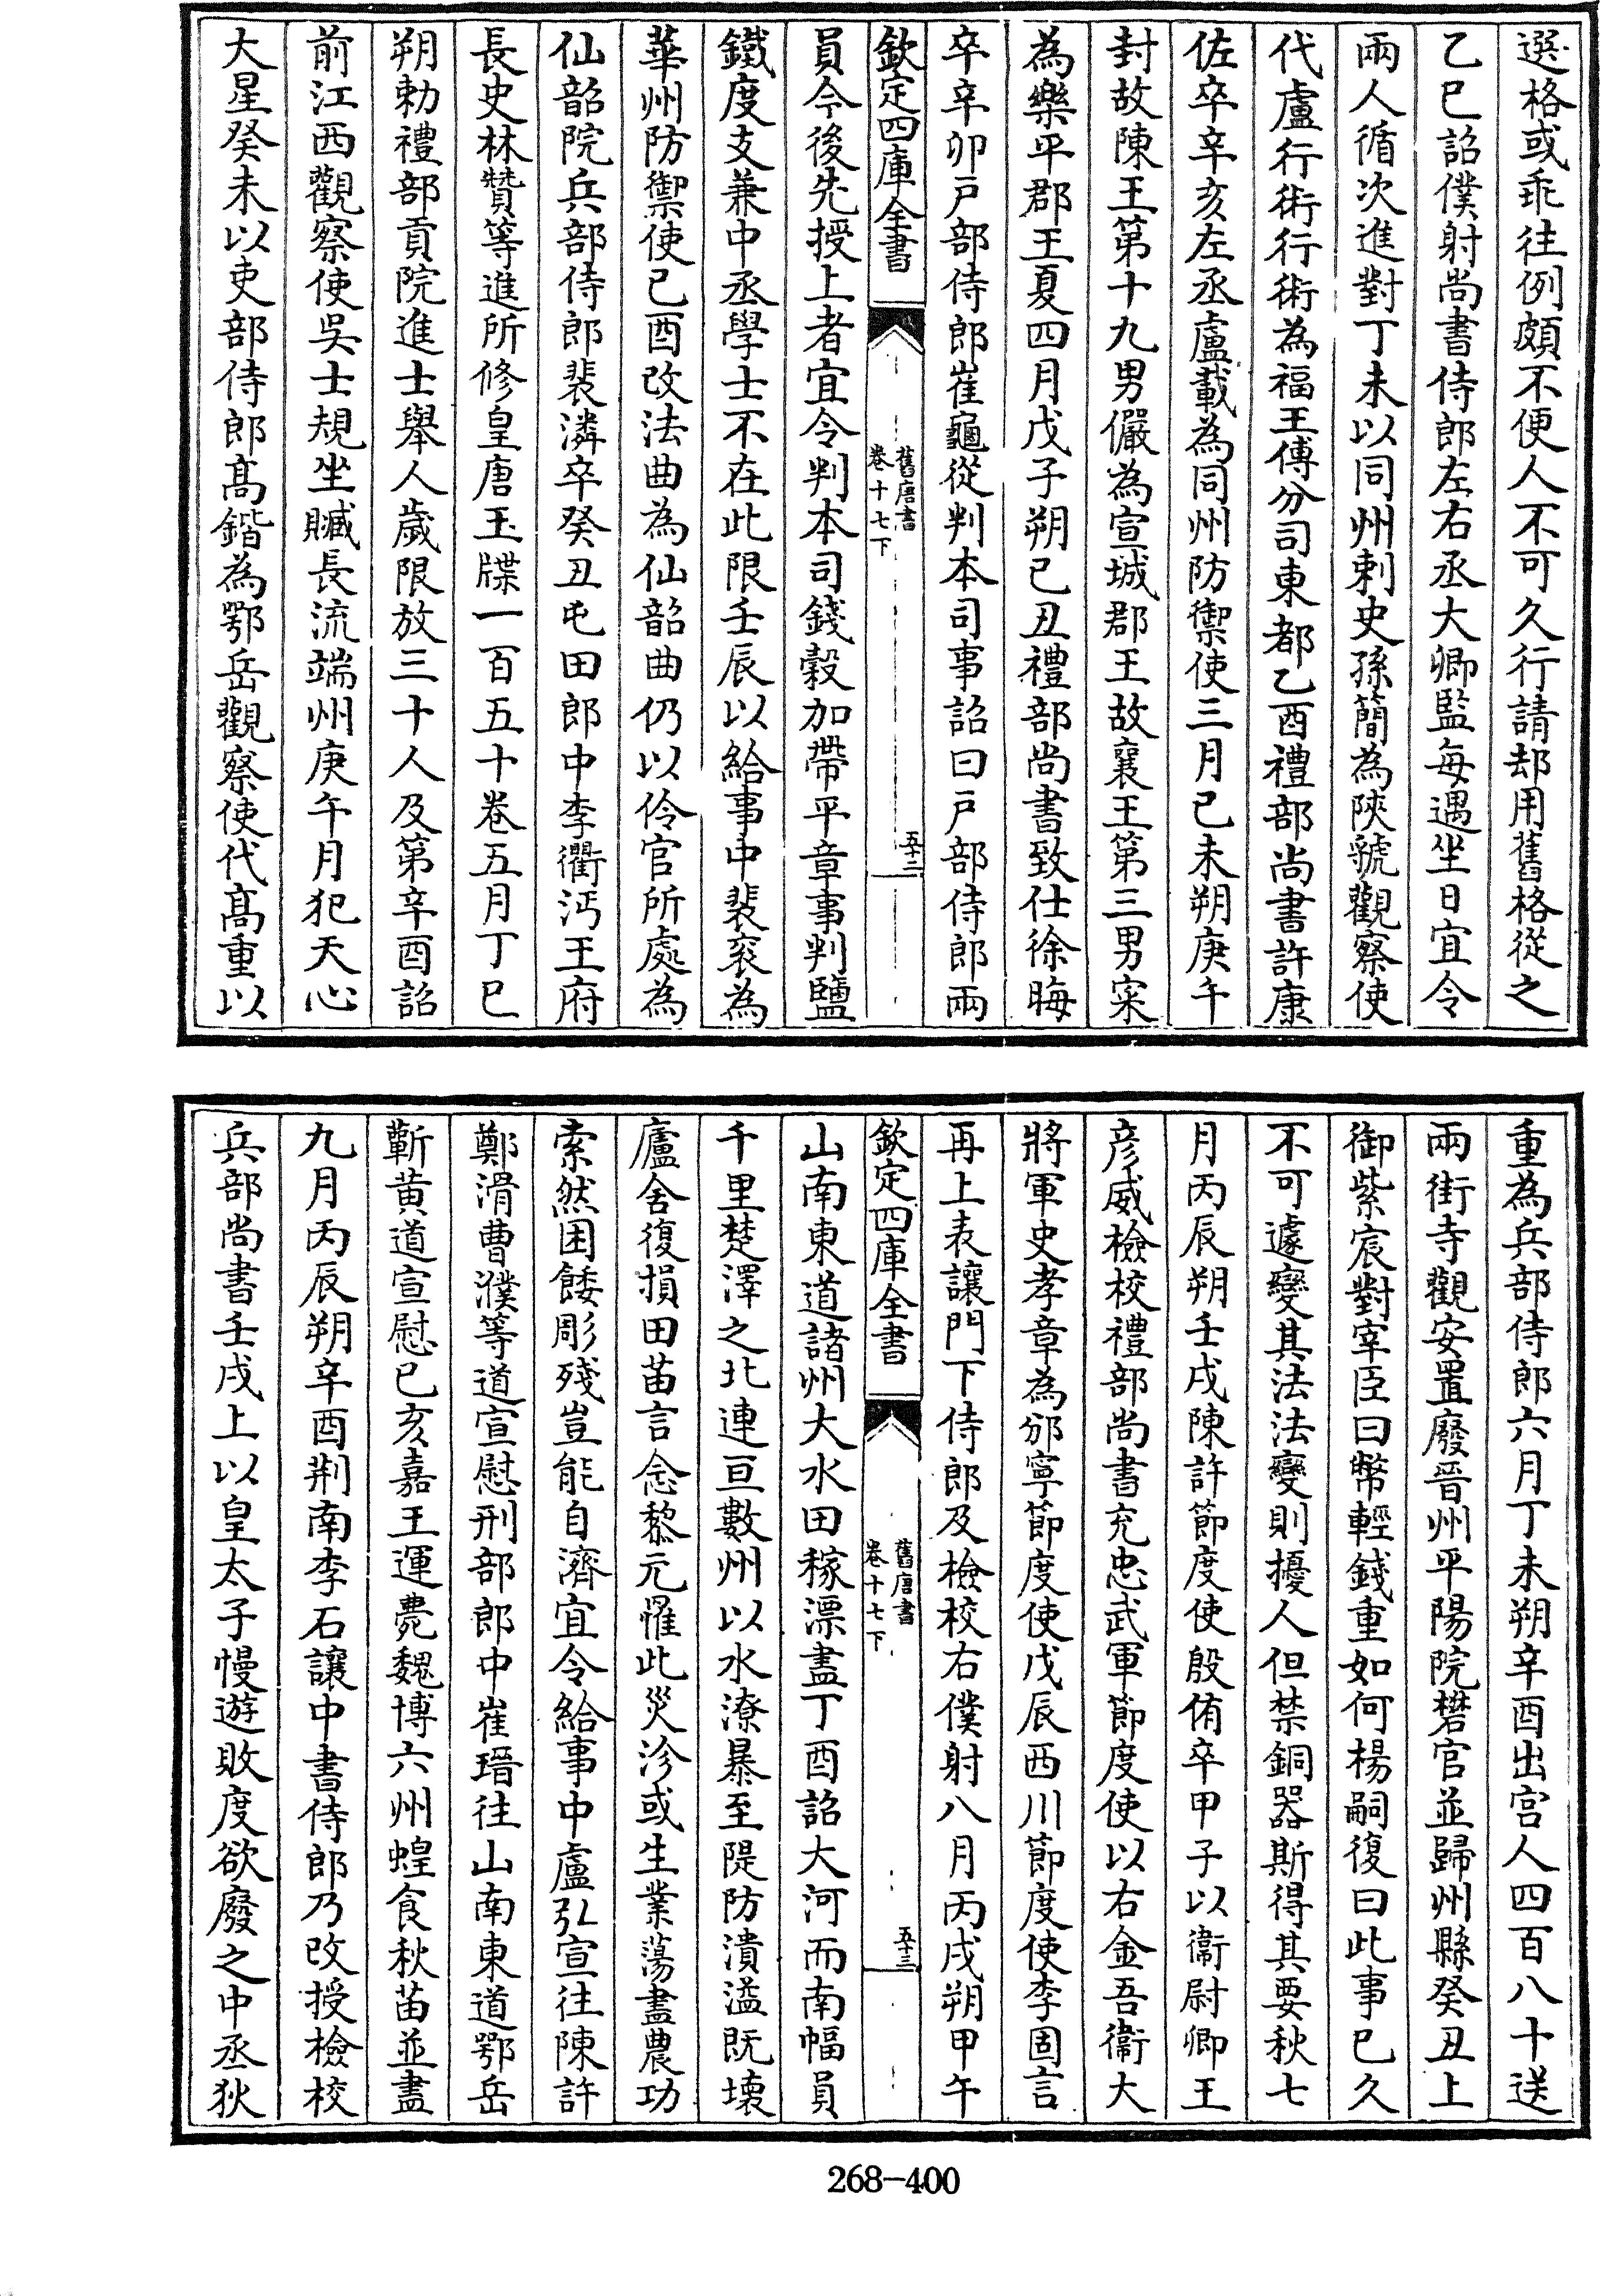 選格或乖往例頗不便人不可久行請却用舊格從之
乙巳詔僕射尚書侍郎左右丞大卿監每遇坐日宜令
兩人循次進對丁未以同州刺史孫簡為陝虢觀察使
代盧行術行術為福王傅分司東都乙酉禮部尚書許康
佐卒辛亥左丞盧載為同州防禦使三月己未朔庚午
封故陳王第十九男儼為宣城郡王故襄王第三男寀
為樂平郡王夏四月戊子朔己丑禮部尚書致仕徐晦
卒辛卯戶部侍郎崔龜從判本司事詔曰戶部侍郎兩
欽定四庫全書
舊唐書
卷十七下
五十二
員今後先授上者宜令判本司錢穀加帶平章事判鹽
鐵度支兼中丞學士不在此限壬辰以給事中裴衮為
華州防禦使己酉改法曲為仙韶曲仍以伶官所處為
仙韶院兵部侍郎裴潾卒癸丑屯田郎中李衢沔王府
長史林贊等進所修皇唐玉牒一百五十卷五月丁巳
朔勅禮部貢院進士舉人歲限放三十人及第辛酉詔
前江西觀察使吳士規坐贓長流端州庚午月犯天心
大星癸未以吏部侍郎髙鍇為鄂岳觀察使代髙重以
重為兵部侍郎六月丁未朔辛酉出宮人四百八十送
兩街寺觀安置廢晉州平陽院礬官並歸州縣癸丑上
御紫宸對宰臣曰幣輕錢重如何楊嗣復曰此事已久
不可遽變其法法變則擾人但禁銅器斯得其要秋七
月丙辰朔壬戌陳許節度使殷侑卒甲子以衞尉卿王
彦威檢校禮部尚書充忠武軍節度使以右金吾衞大
將軍史孝章為邠寧節度使戊辰西川節度使李固言
再上表讓門下侍郎及檢校右僕射八月丙戌朔甲午
欽定四庫全書
舊唐書
卷十七下
五十三
山南東道諸州大水田稼漂盡丁酉詔大河而南幅員
千里楚澤之北連亘數州以水潦暴至隄防潰溢既壊
廬舍復損田苗言念黎元罹此災沴或生業蕩盡農功
索然困餧彫殘豈能自濟宜令給事中盧弘宣往陳許
鄭滑曹濮等道宣慰刑部郎中崔瑨往山南東道鄂岳
蘄黃道宣慰己亥嘉王運薨魏博六州蝗食秋苗並盡
九月丙辰朔辛酉荆南李石讓中書侍郎乃改授檢校
兵部尚書壬戌上以皇太子慢遊敗度欲廢之中丞狄
268-400